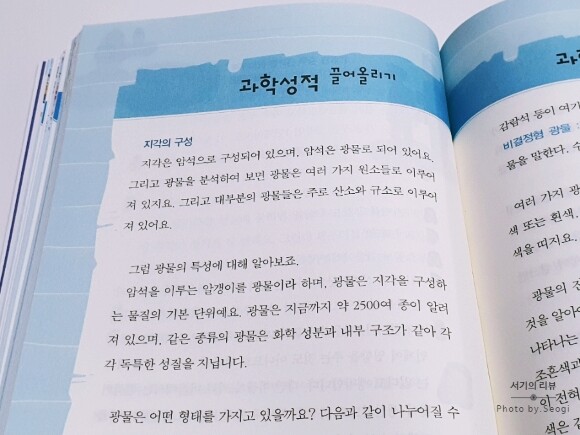 과학성적 끌어올리기
지각의 구성
지각은 암석으로 구성되어 있으며, 암석은 광물로 되어 있어요.
그리고 광물을 분석하여 보면 광물은 여러 가지 원소들로 이루어
져 있지요. 그리고 대부분의 광물들은 주로 산소와 규소로 이루어
져 있어요.
그럼 광물의 특성에 대해 알아보죠.
암석을 이루는 알갱이를 광물이라 하며, 광물은 지각을 구성하
는 물질의 기본 단위예요. 광물은 지금까지 약 2500여 종이 알려
져 있으며, 같은 종류의 광물은 화학 성분과 내부 구조가 같아 각
각 독특한 성질을 지닙니다.
광물은 어떤 형태를 가지고 있을까요? 다음과 같이 나누어질 수
감람석 등이 여기
비결정형 광물
물을 말한다. 수
여러 가지 광
색 또는 흰색,
색을 띠지요.
광물의 전
것을 알아
나타나는
조흔색과
의 전혀
색은 감
서기의 리뷰
Photo by. Seogi